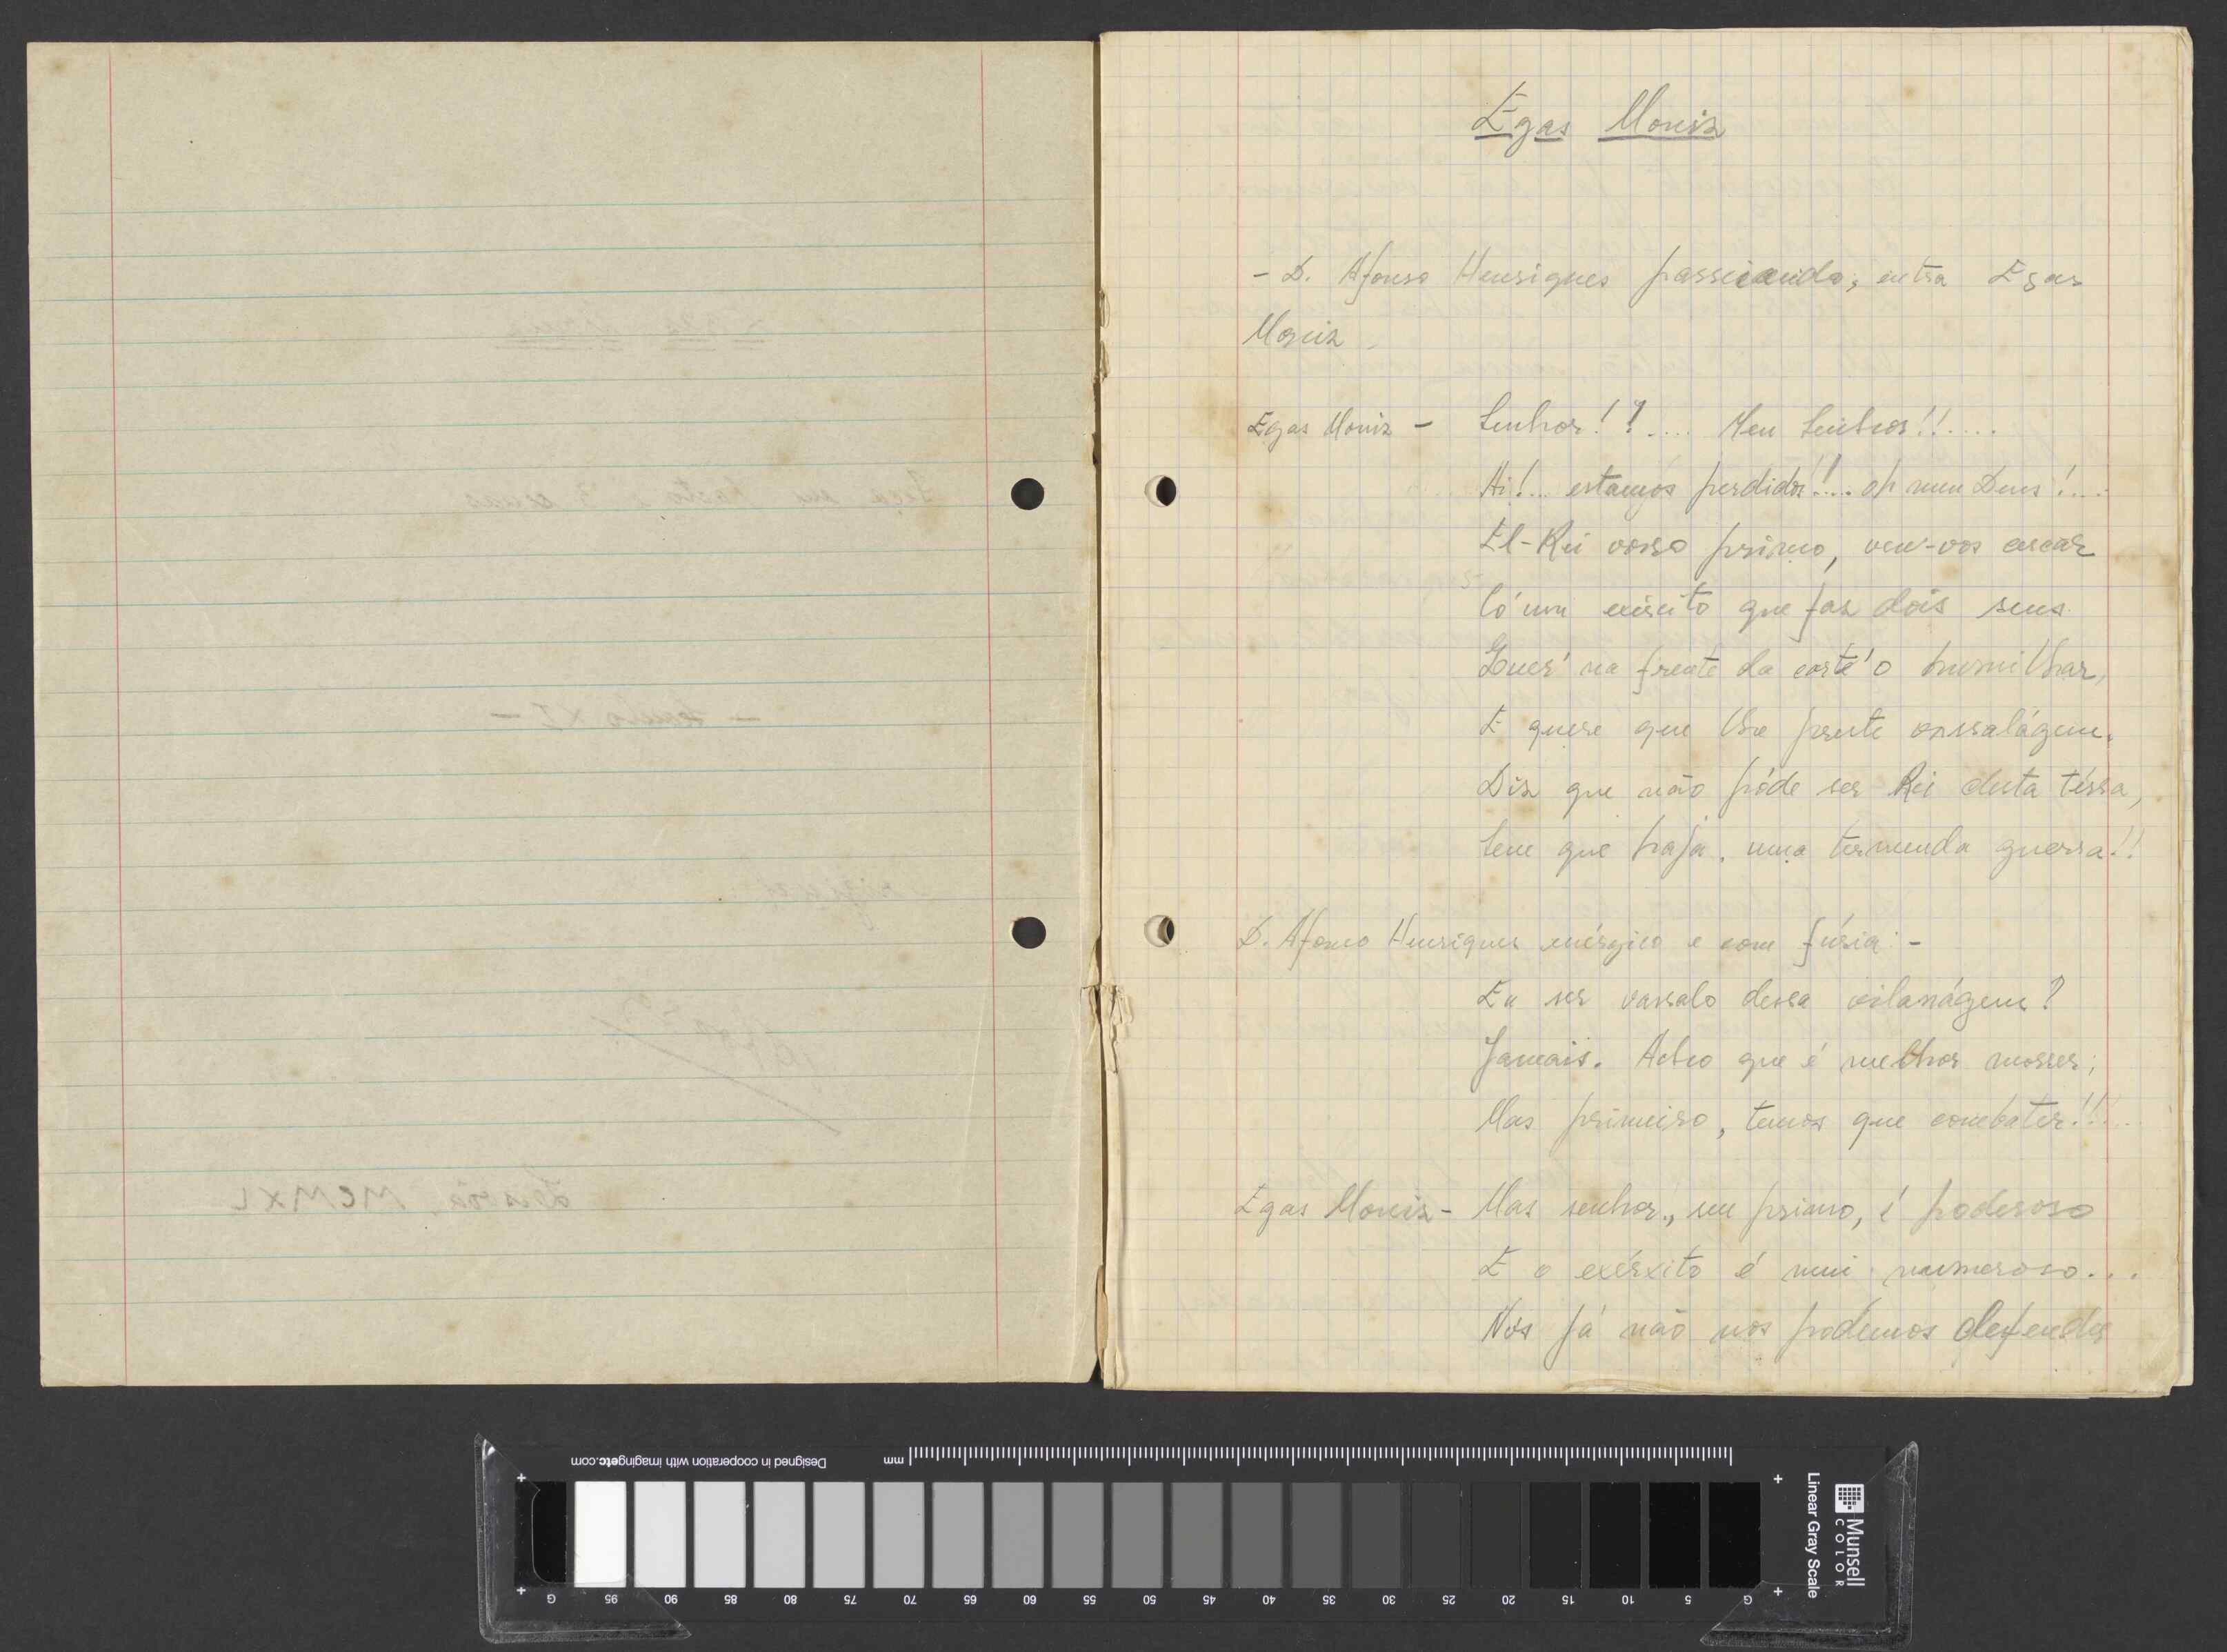 Egas Moniz
- D. Afonso Henriques passeiando, entra Egas
Moniz.
Egas Moniz - Senhor!?.... Meu Senhor!!....
Ai!... estamos perdidos!... oh meu Deus!...
El-Rei vosso primo, vem-vos cercar
Có'um exército que faz dois seus
Quer' na frente da corte'o humilhar,
E quere que lhe preste vassalágem.
Diz que não póde ser Rei desta térra,
Sem que haja uma tremenda guerra!!
D. Afonso Henriques enérgico e com fúria: -
Eu ser vassalo dessa vilanágem?
Jamais. Acho que é melhor morrer;
Mas primeiro, temos que combater!!!...
Egas Moniz - Mas senhor, seu primo, é poderoso
E o exérxito é mui numeroso...
Nós já não nos podemos defender
Lisbôa, MCMXL
Designed in cooperation with imagingetc.com
mm
G 95 90 85 80 75 70 65 60 55 50 45 40 35 30 25 20 15 10 5 G
Munsell
COLOR
Linear Gray Scale